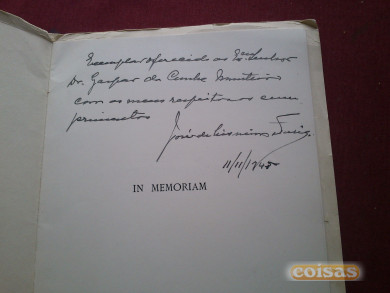 Exemplar oferecido ao Exmº Senhor
Dr. Gaspar da Cunha Monteiro
com os meus respeitosos cum
primentos
José de
11/11/1940
IN MEMORIAM
coisas